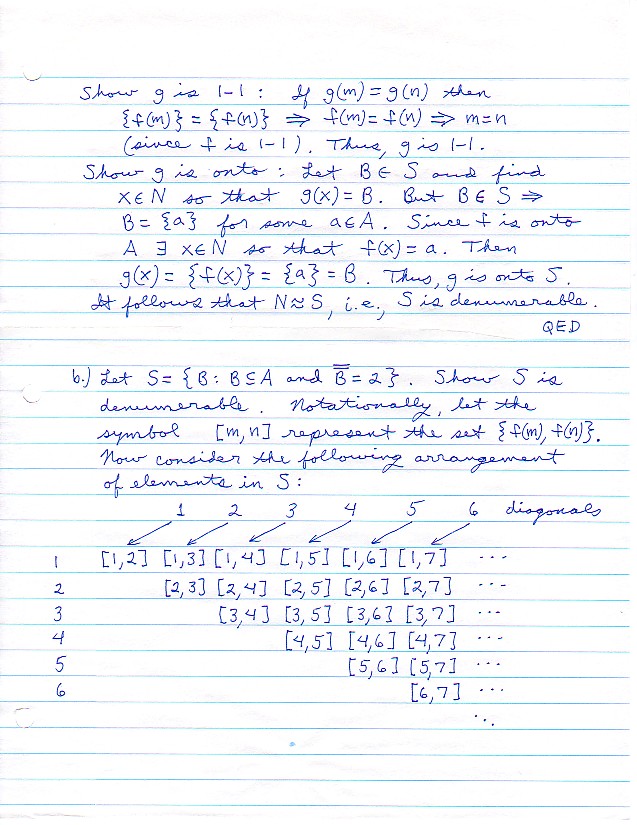 Show g is 1-1 : If g(m) = g(n) then
{f(m)} = {f(n)} ⇒ f(m) = f(n) ⇒ m=n
(since f is 1-1). Thus, g is 1-1.
Show g is onto : Let B ∈ S and find
x∈N so that g(x) = B. But B∈S ⇒
B = {a} for some a∈A. Since f is onto
A ∃ x∈N so that f(x) = a. Then
g(x) = {f(x)} = {a} = B. Thus, g is onto S.
It follows that N≈S, i.e., S is denumerable.
QED
b.) Let S = {B: B⊆A and B̿ = 2}. Show S is
denumerable. Notationally, let the
symbol [m,n] represent the set {f(m), f(n)}.
Now consider the following arrangement
of elements in S:
1 2 3 4 5 6 diagonals
1 [1,2] [1,3] [1,4] [1,5] [1,6] [1,7] ...
2 [2,3] [2,4] [2,5] [2,6] [2,7] ...
3 [3,4] [3,5] [3,6] [3,7] ...
4 [4,5] [4,6] [4,7] ...
5 [5,6] [5,7] ...
6 [6,7] ...
⋱